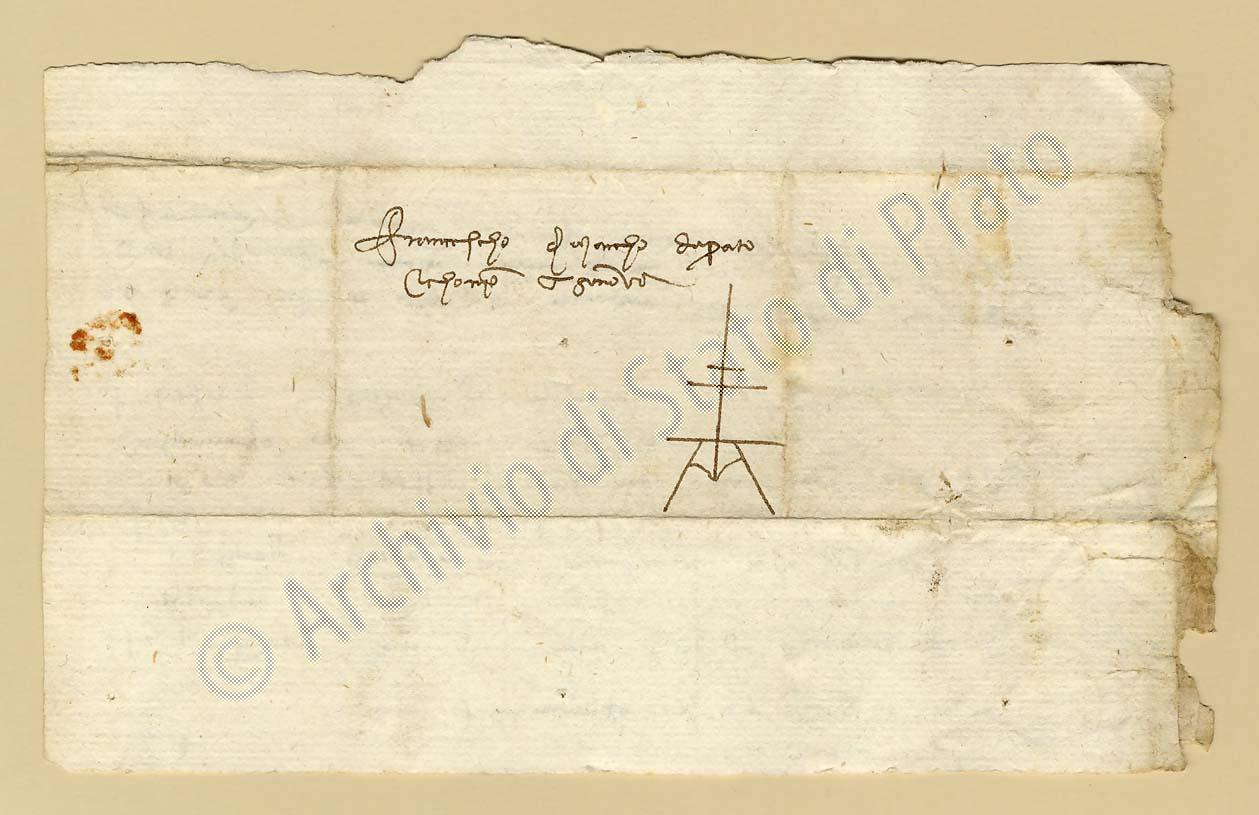 Francescho di Marcho da Prato
e chonp. in Genova
© Archivio di Stato di Prato